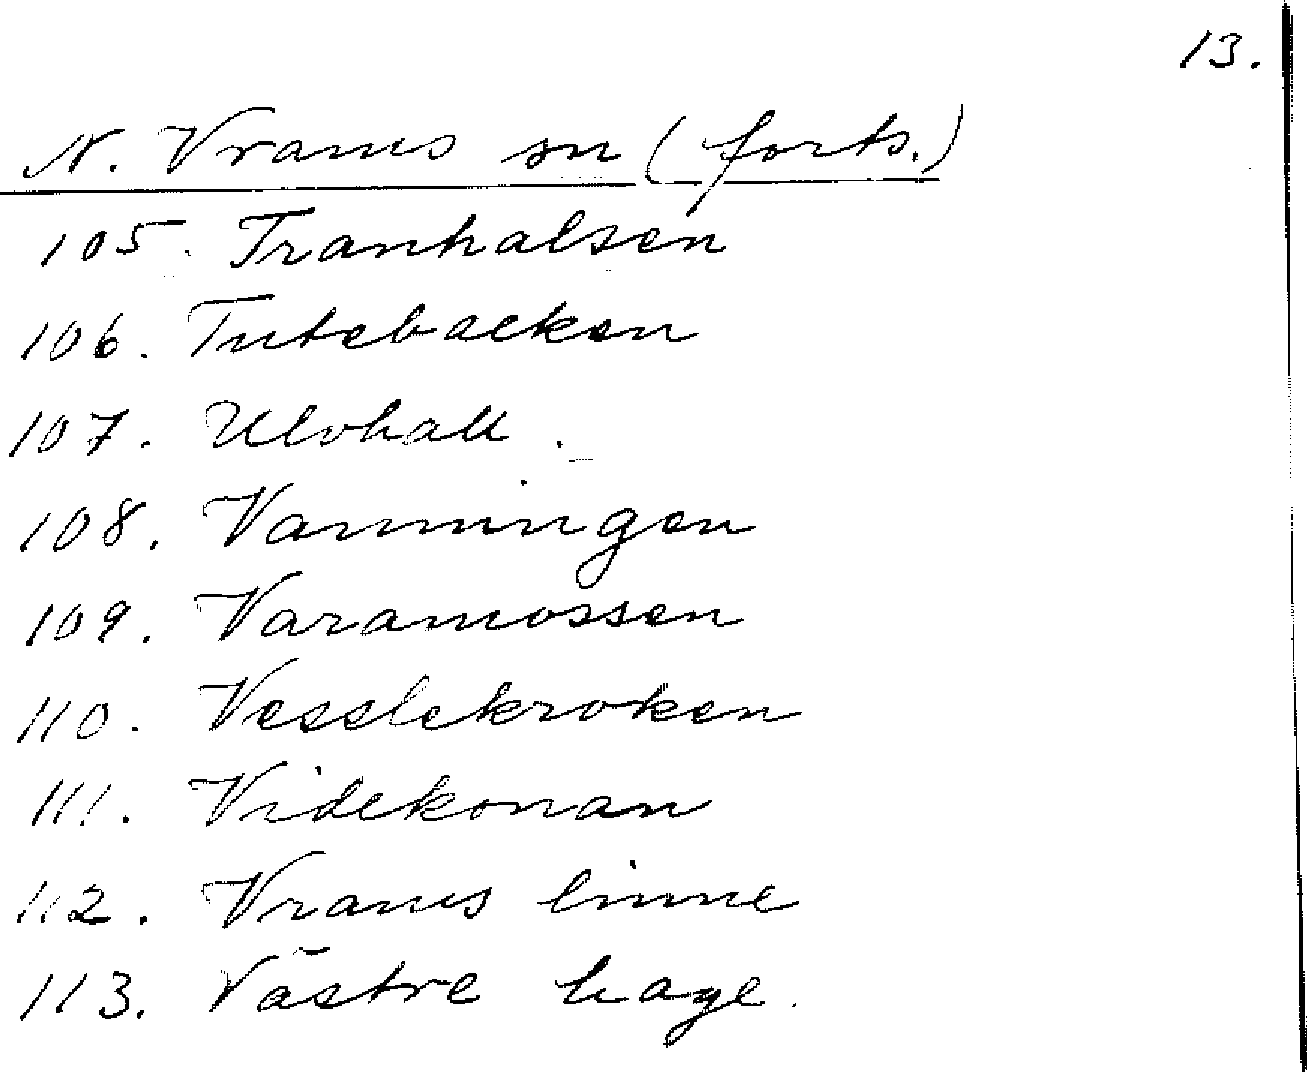 13.
N. Vrams sn (forts.)
105. Tranhalsen
106. Tutebacken
107. Ulvhall.
108. Varmningen
109. Varamossen
110. Vesslekroken
111. Videkonan
112. Vrams linne
113. Västre hage.